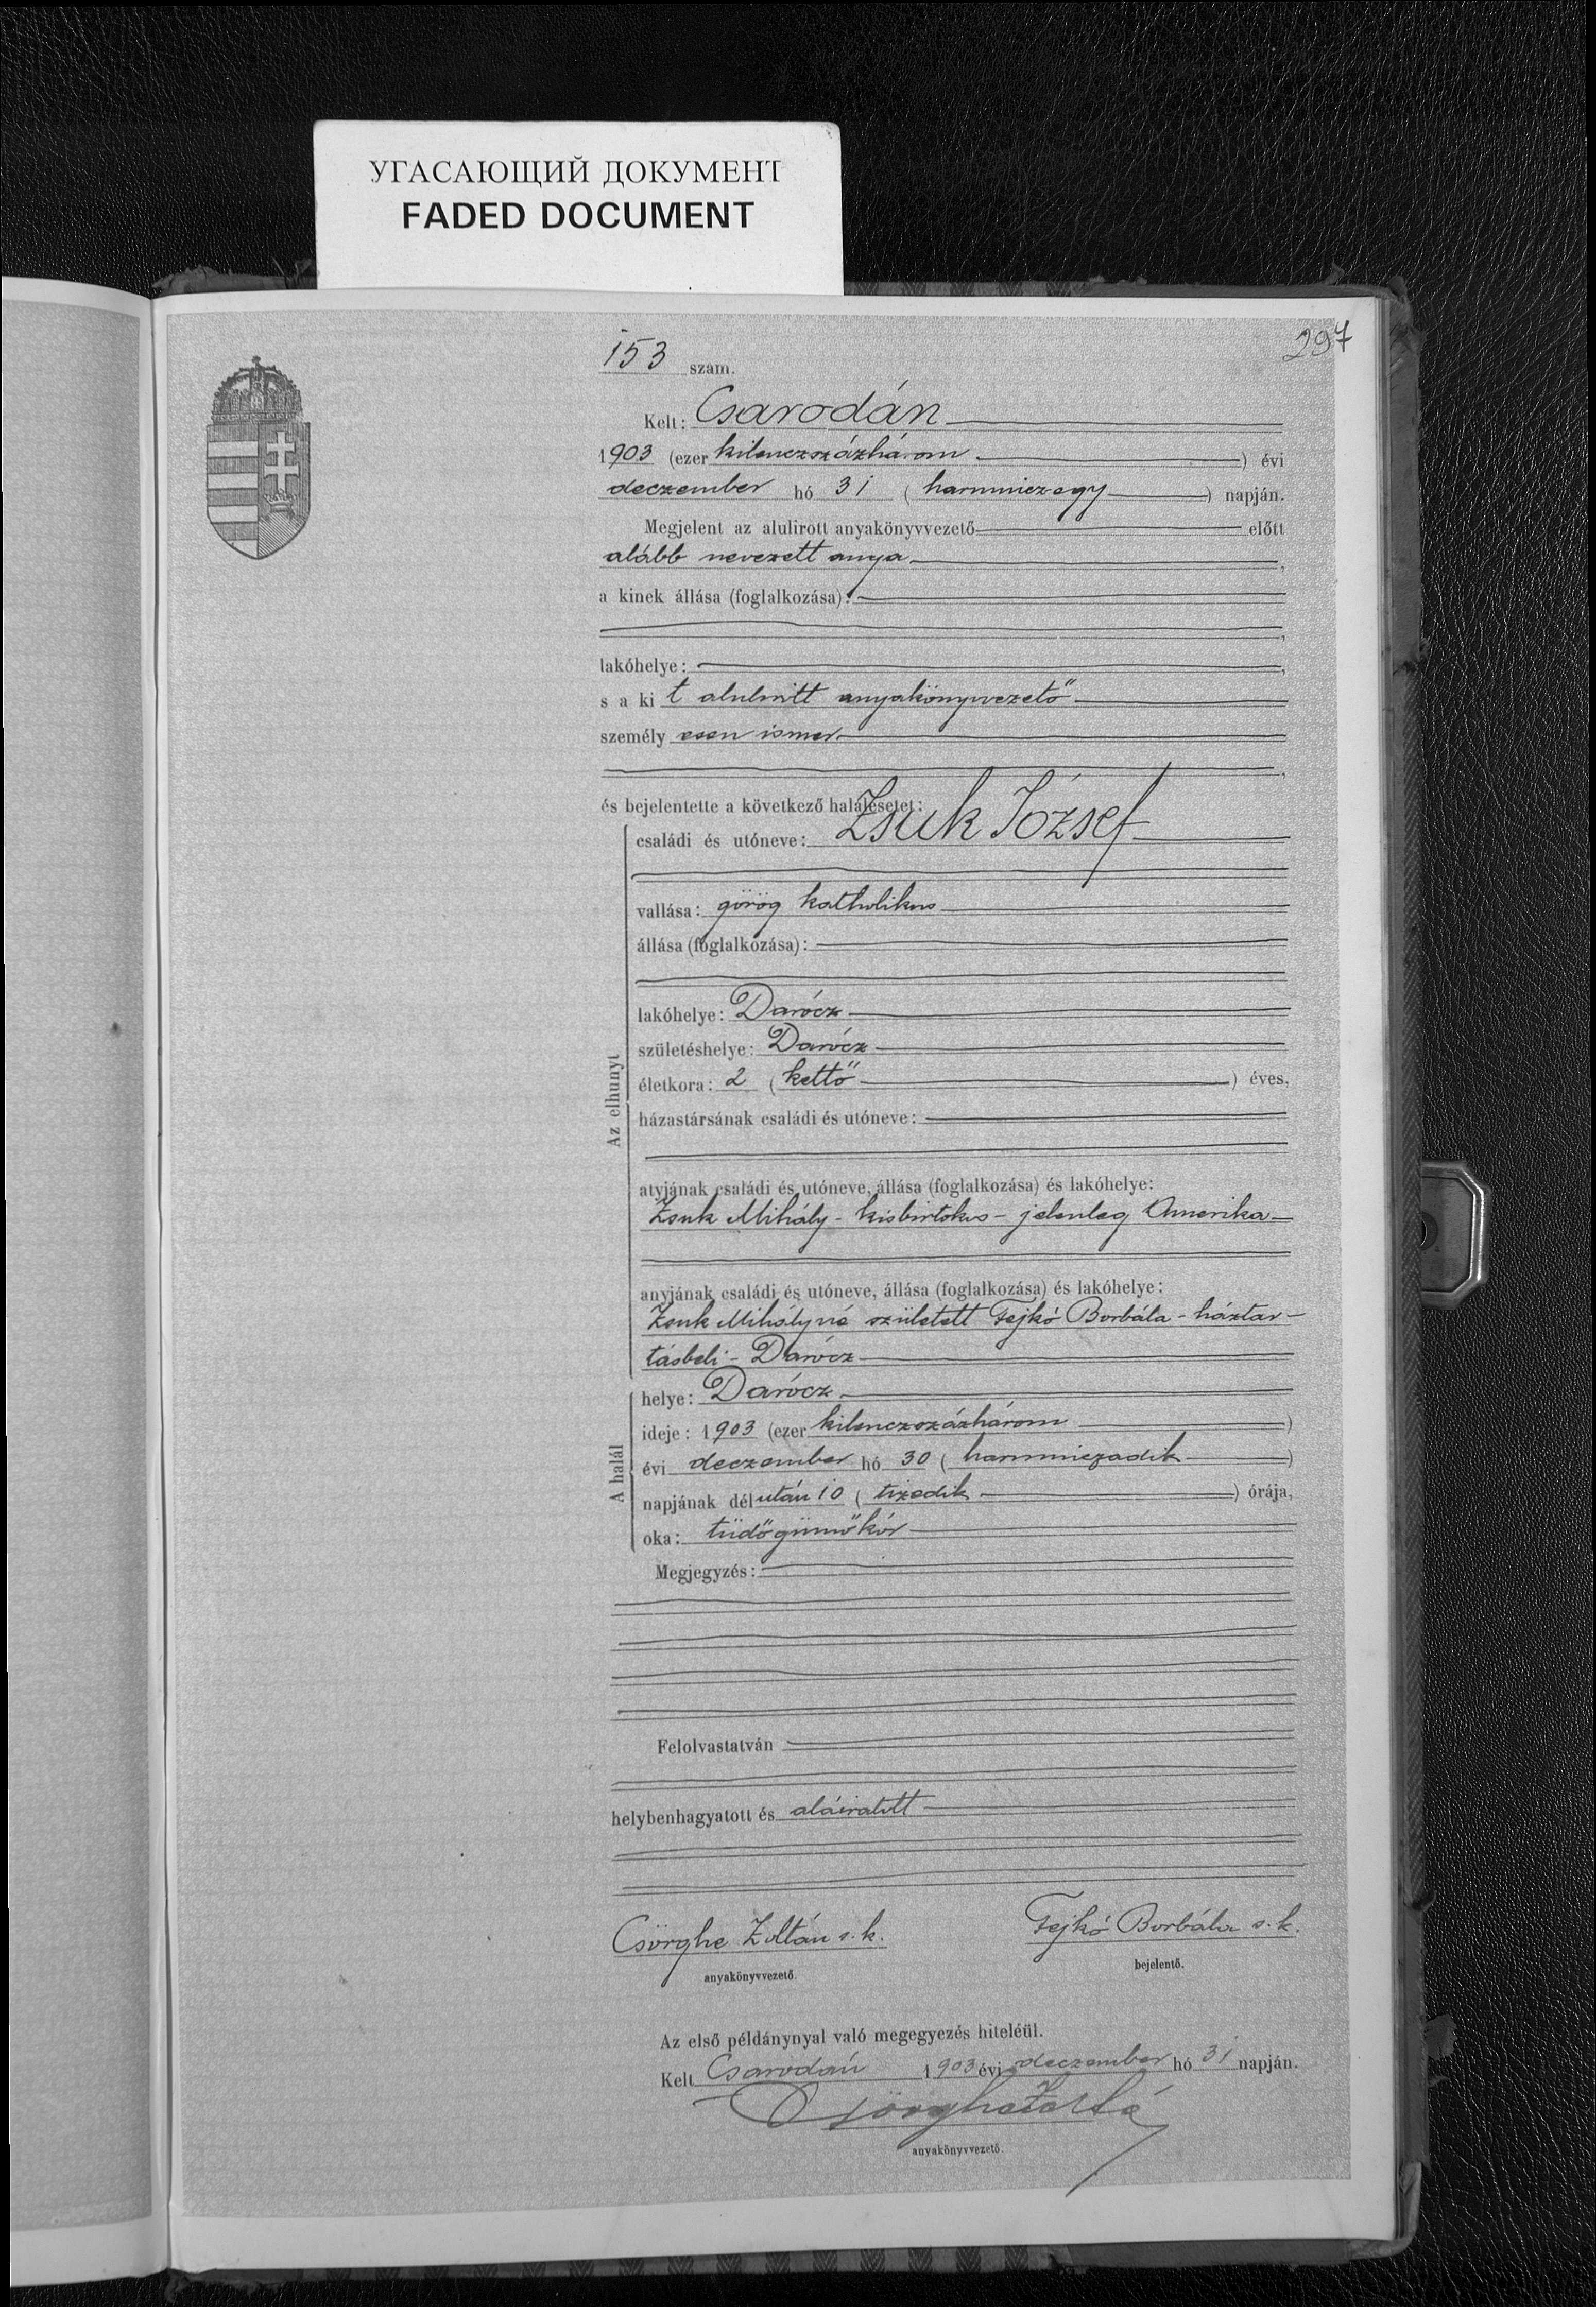 УГАСАЮЩИЙ ДОКУМЕНТ
FADED DOCUMENT
297
153 szám.
Kelt: Csarodán
1903 (ezer kilenczszázhárom) évi
deczember hó 31 (harmniczegy) napján.
Megjelent az alulirott anyakönyvvezető előtt
alább nevezett anya,
a kinek állása (foglalkozása):
lakóhelye:
s a ki t alulirott anyakönyvvezető
személy esen ismer
és bejelentette a következő halálesetet:
családi és utóneve: Zsuk József
vallása: görög katholikus
állása (foglalkozása):
lakóhelye: Darócz
születéshelye: Darócz
életkora: 2 (kettő) éves,
házastársának családi és utóneve:
Az elhunyt
atyjának családi és utóneve, állása (foglalkozása) és lakóhelye:
Zsuk Mihály - kisbirtokos - jelenleg Amerika
anyjának családi és utóneve, állása (foglalkozása) és lakóhelye:
Zsuk Mihályné született Fejkó Borbála - háztar-
tásbeli - Darócz
A halál
helye: Darócz
ideje: 1903 (ezer kilenczszázhárom)
évi deczember hó 30 (harmniczadik)
napjának dél után 10 (tizedik) órája,
oka: tüdőgümőkór
Megjegyzés:
Felolvastatván
helybenhagyatott és aláiratott
Csörghe Zoltán s. k.
anyakönyvvezető.
Fejkó Borbála s. k.
bejelentő.
Az első példánynyal való megegyezés hiteléül.
Kelt Csarodán 1903 évi deczember hó 31 napján.
Csörghe Zoltán
anyakönyvvezető.